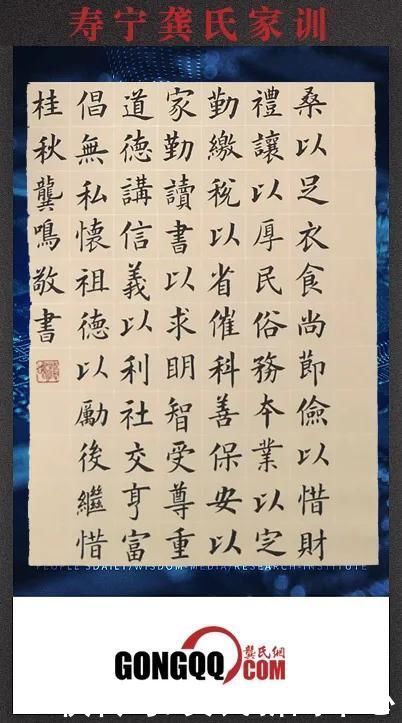 寿宁龚氏家训
桑以足衣食尚節儉以惜財
禮讓以厚民俗務本業以定
勤繳稅以省催科善保安以
家勤讀書以求明智受尊重
道德講信義以利社交亨富
倡無私懷祖德以勵後繼惜
桂秋龔鳴敬書
PEOPLE'S DAILY/WISDOM-MEDIA/RESEARCH-INSTITUTE
龔氏網
GONGQQ.COM